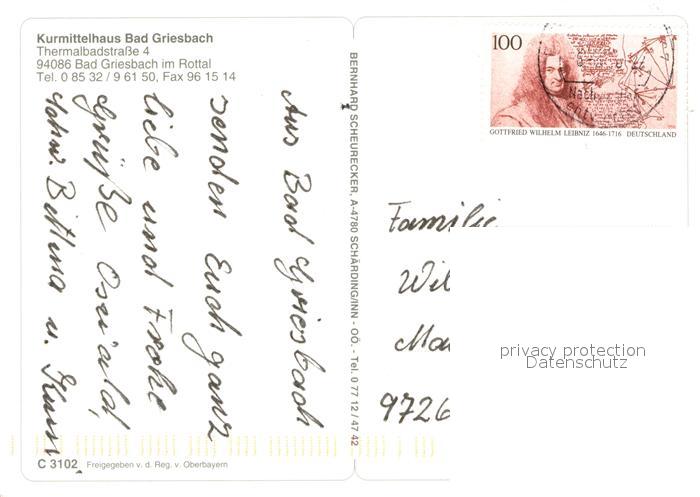 Kurmittelhaus Bad Griesbach
Thermalbadstraße 4
94086 Bad Griesbach im Rottal
Tel. 0 85 32 / 9 61 50, Fax 96 15 14
Aus Bad Griesbach
senden Euch ganz
liebe und Frohe
Grüße Oswald,
Schw. Bettina u.
C 3102
Freigegeben v. d. Reg. v. Oberbayern
BERNHARD SCHEURECKER, A-4780 SCHÄRDING/INN - OÖ. - Tel. 0 77 12 / 47 42
100
GOTTFRIED WILHELM LEIBNIZ 1646-1716 DEUTSCHLAND
Familie
Wil
Ma
9726
privacy protection
Datenschutz